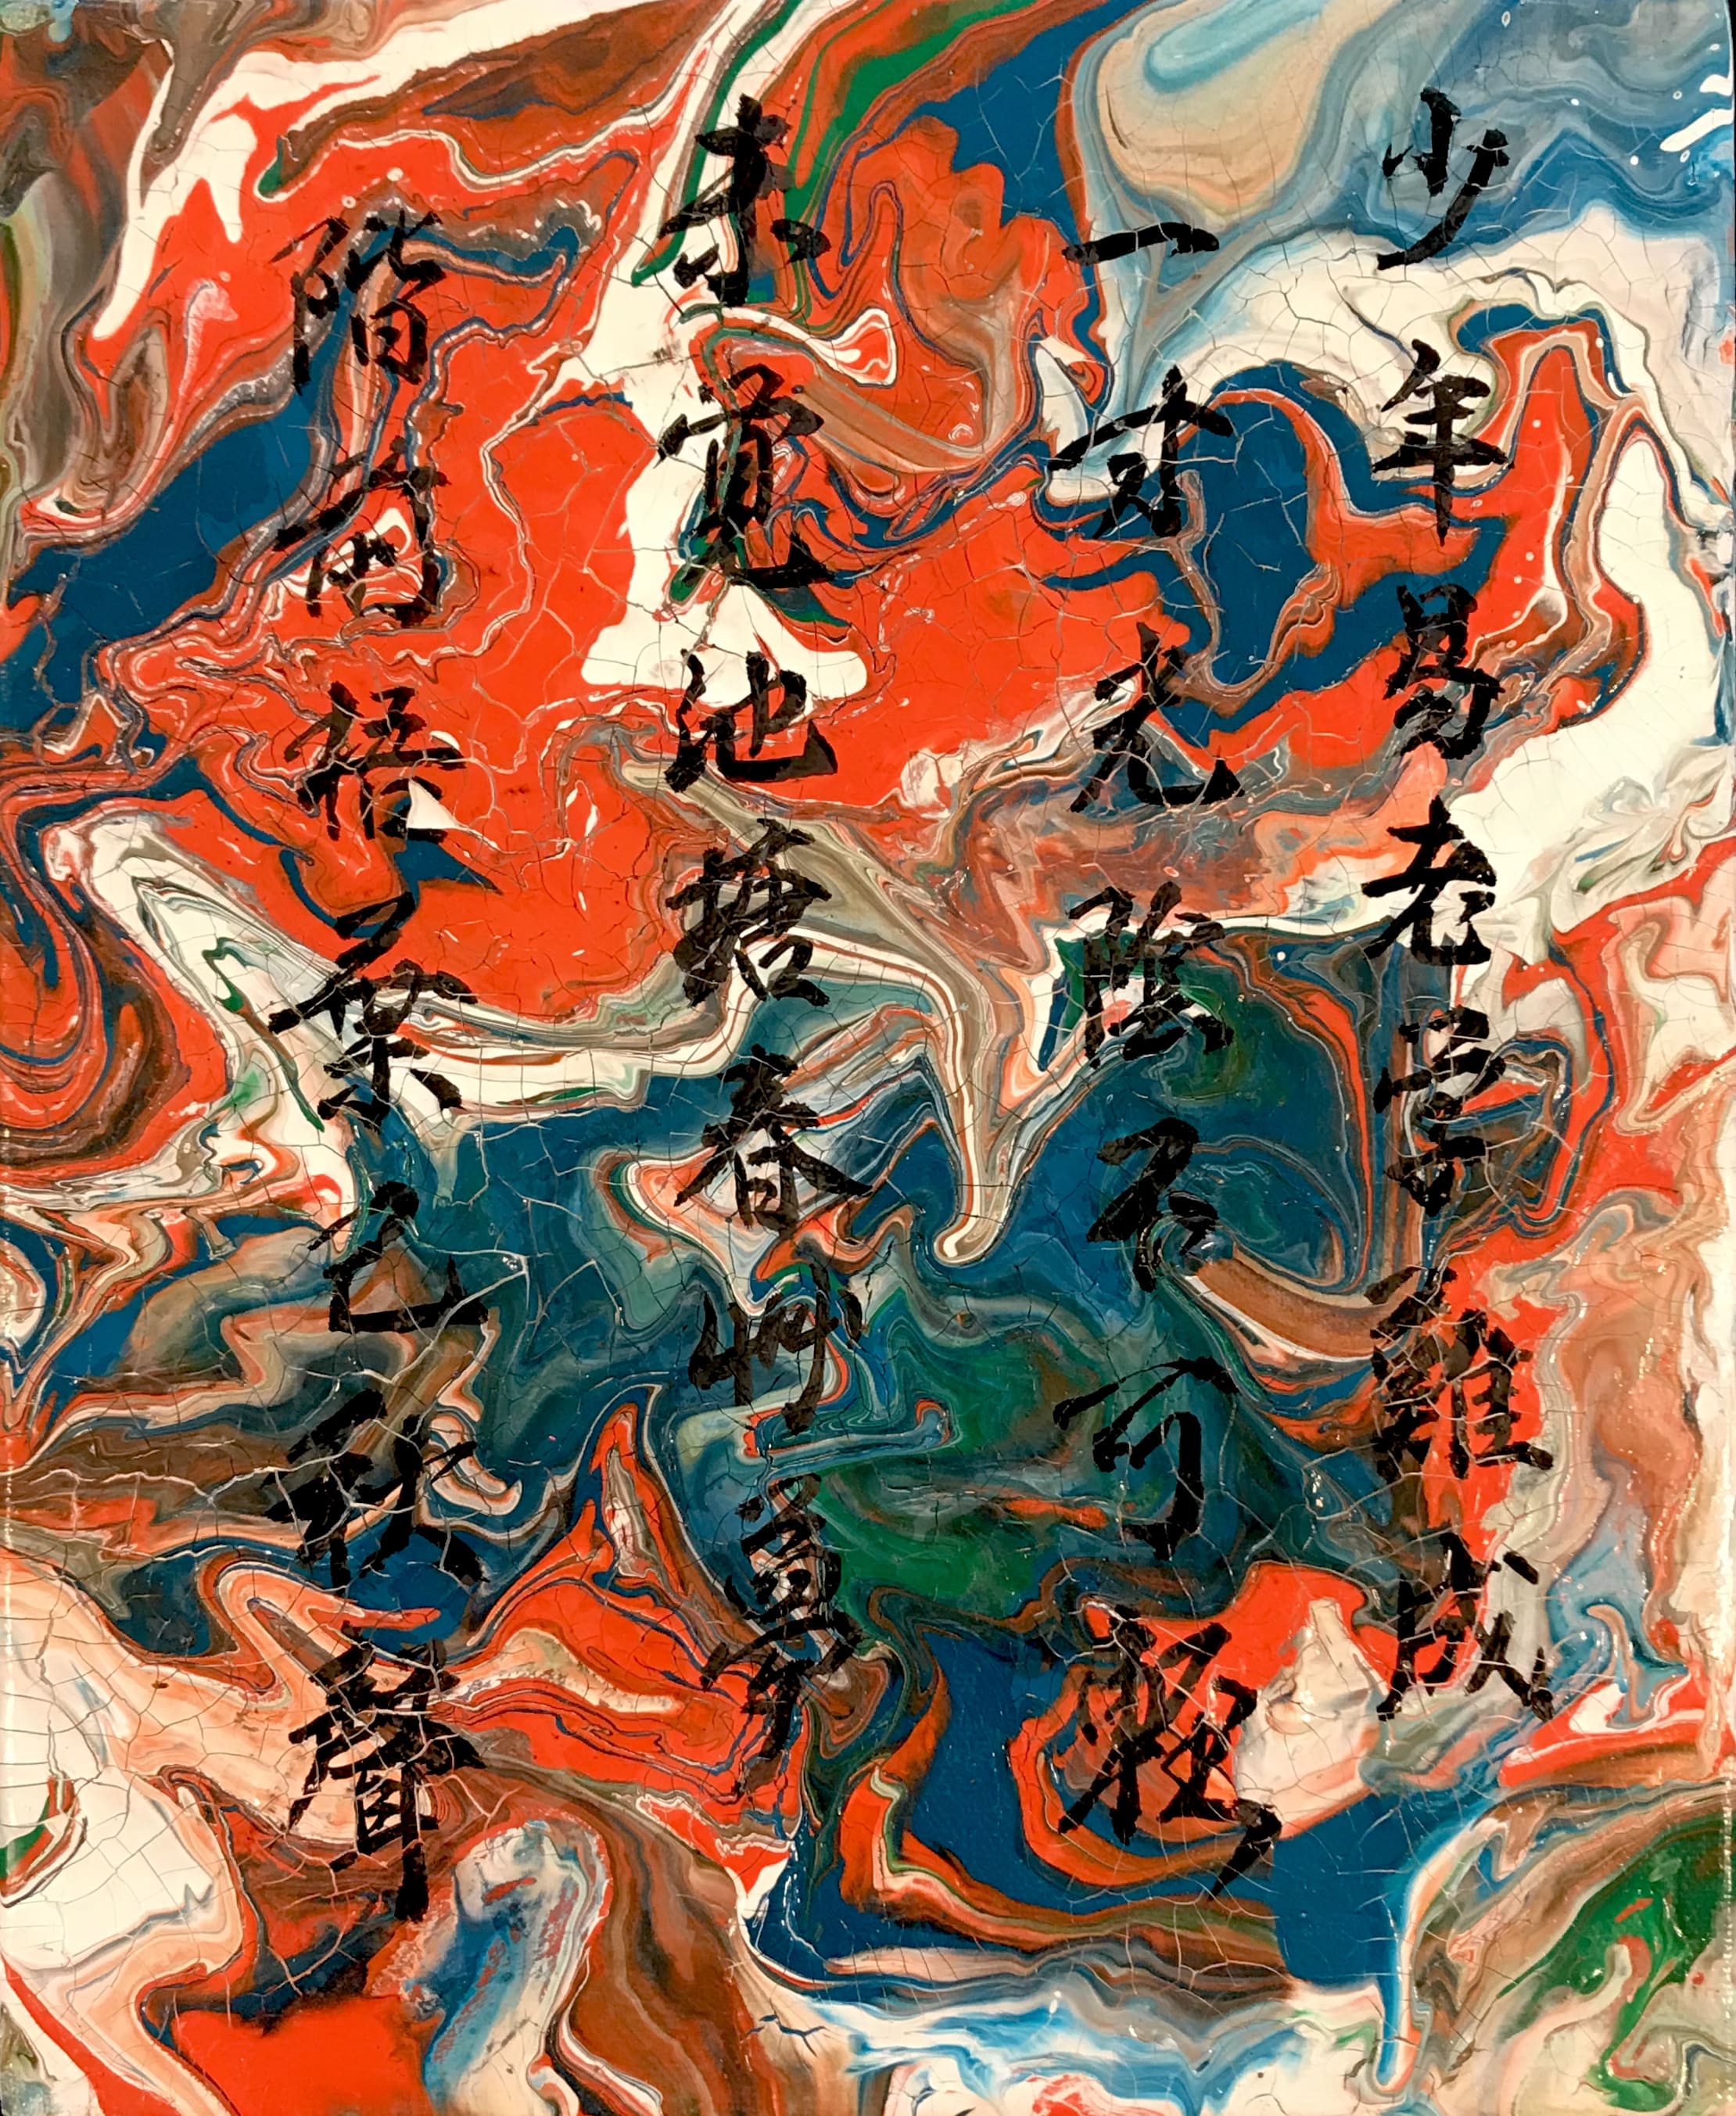 少年易老学難成
一寸光陰不可軽
未覚池塘春艸夢
階前梧葉已秋聲